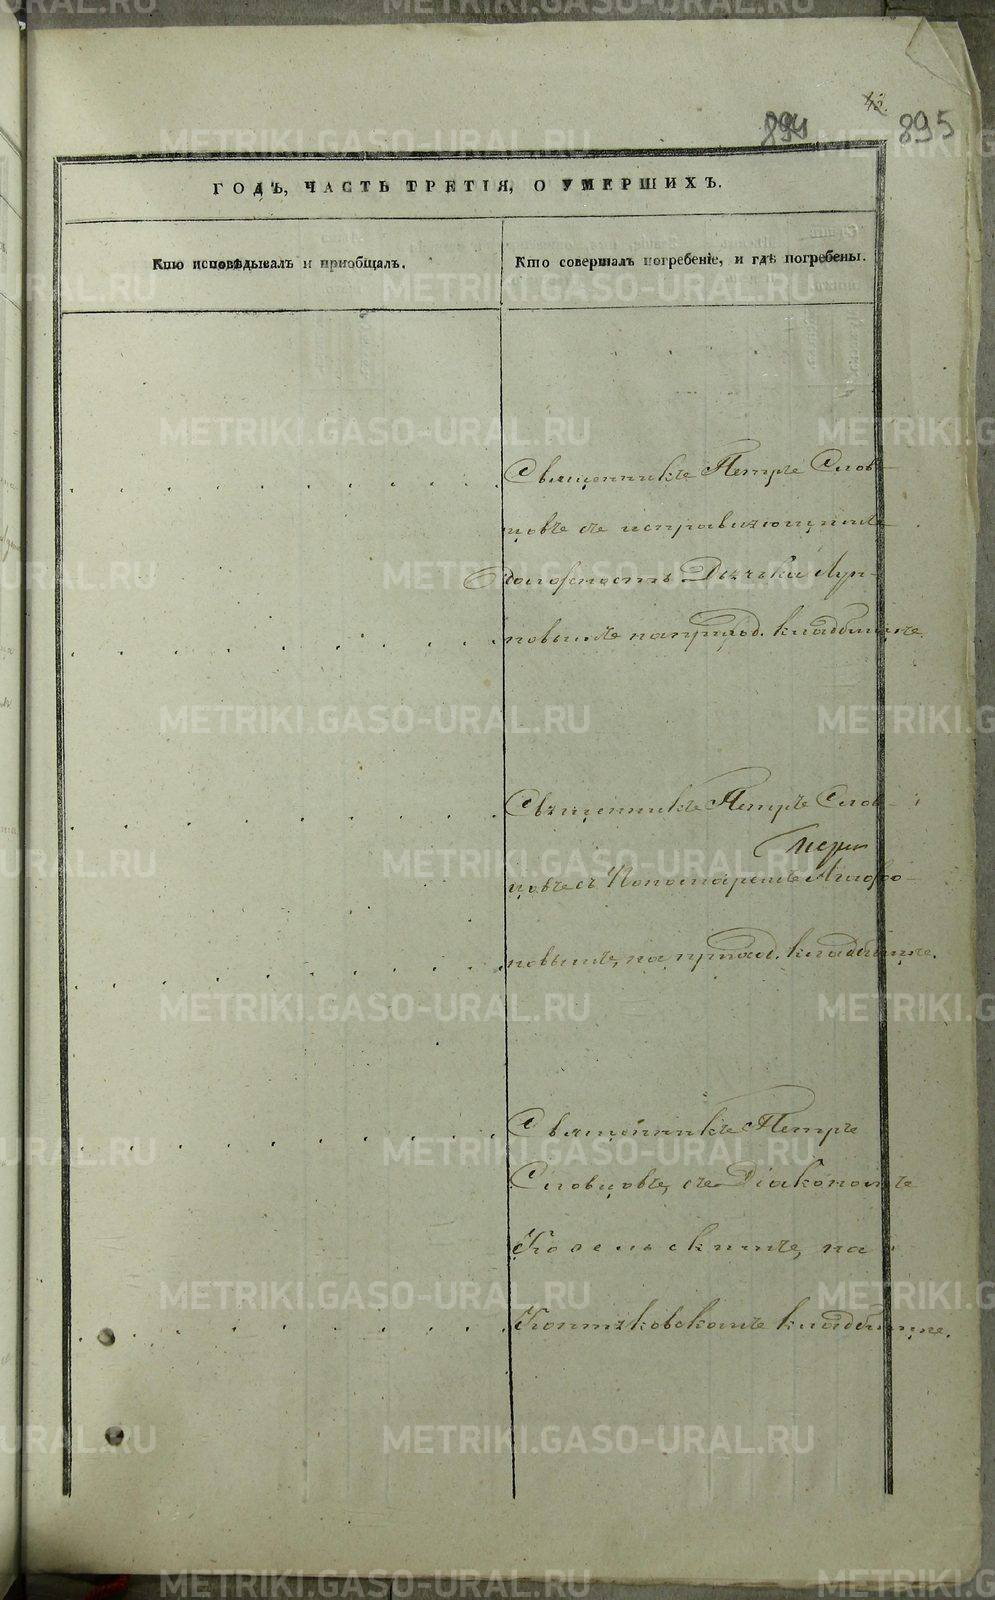 894 895
ГОДЪ, ЧАСТЬ ТРЕТІЯ, О УМЕРШИХЪ.
Кто исповѣдывалъ и пріобщалъ.
Кто совершалъ погребеніе, и гдѣ погребены.
Священникъ Петръ Слов-
цовъ съ исправляющимъ
должность Дьячка Луп-
повымъ на приход. кладбищѣ
Священникъ Петръ Слов-
цовъ съ Пономаремъ
новымъ, на приход. кладбищѣ.
Священникъ Петръ
Словцовъ, съ Діакономъ
Козельскимъ, на
кладбищѣ.
METRIKI.GASO-URAL.RU